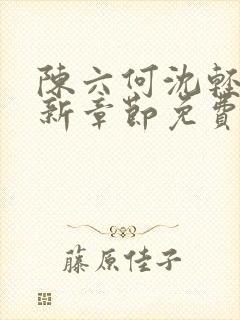 陳六何沈輕
新章節免費
藤原佳子